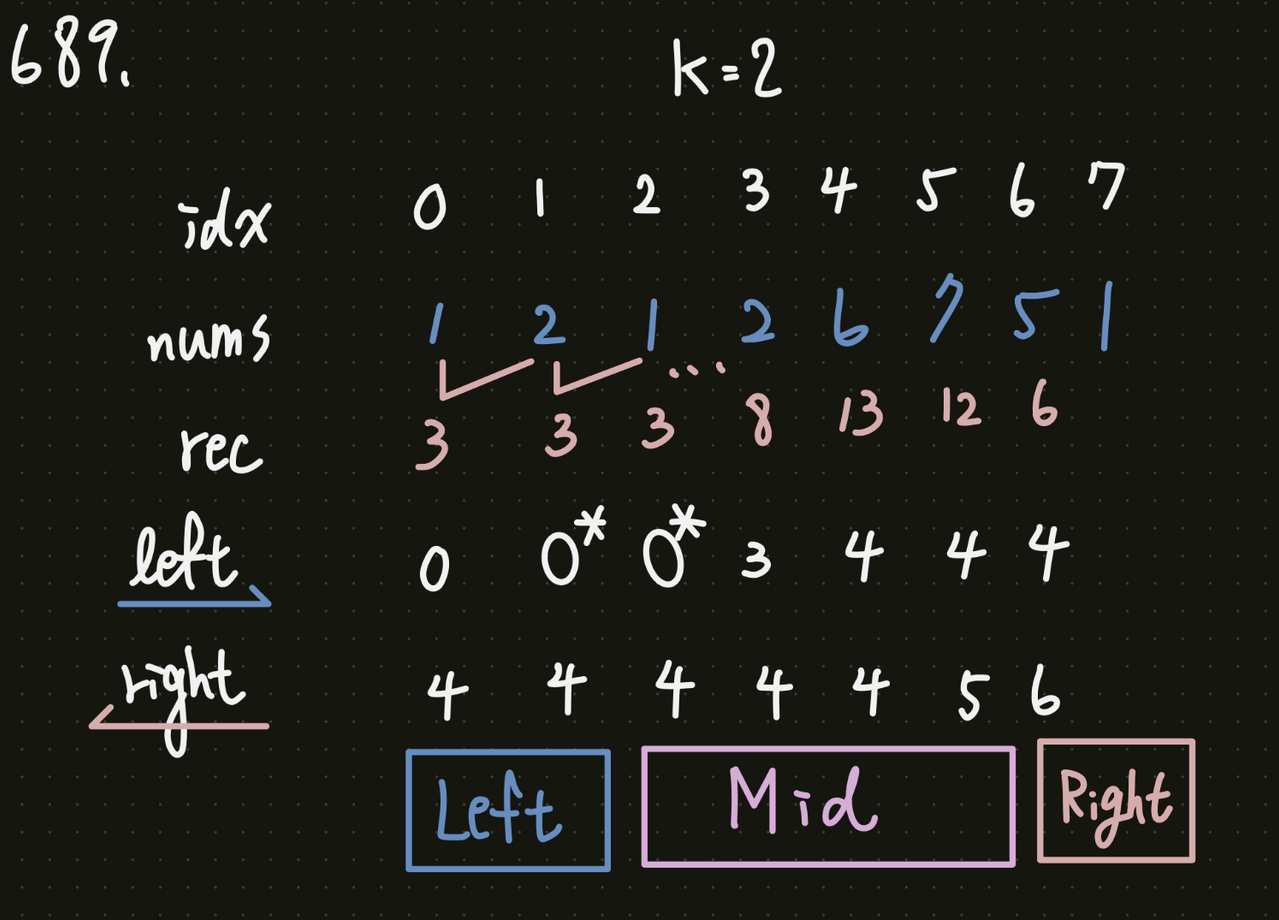 689.
k=2
idx 0 1 2 3 4 5 6 7
nums 1 2 1 2 6 7 5 1
...
rec 3 3 3 8 13 12 6
left 0 0* 0* 3 4 4 4
right 4 4 4 4 4 5 6
Left Mid Right